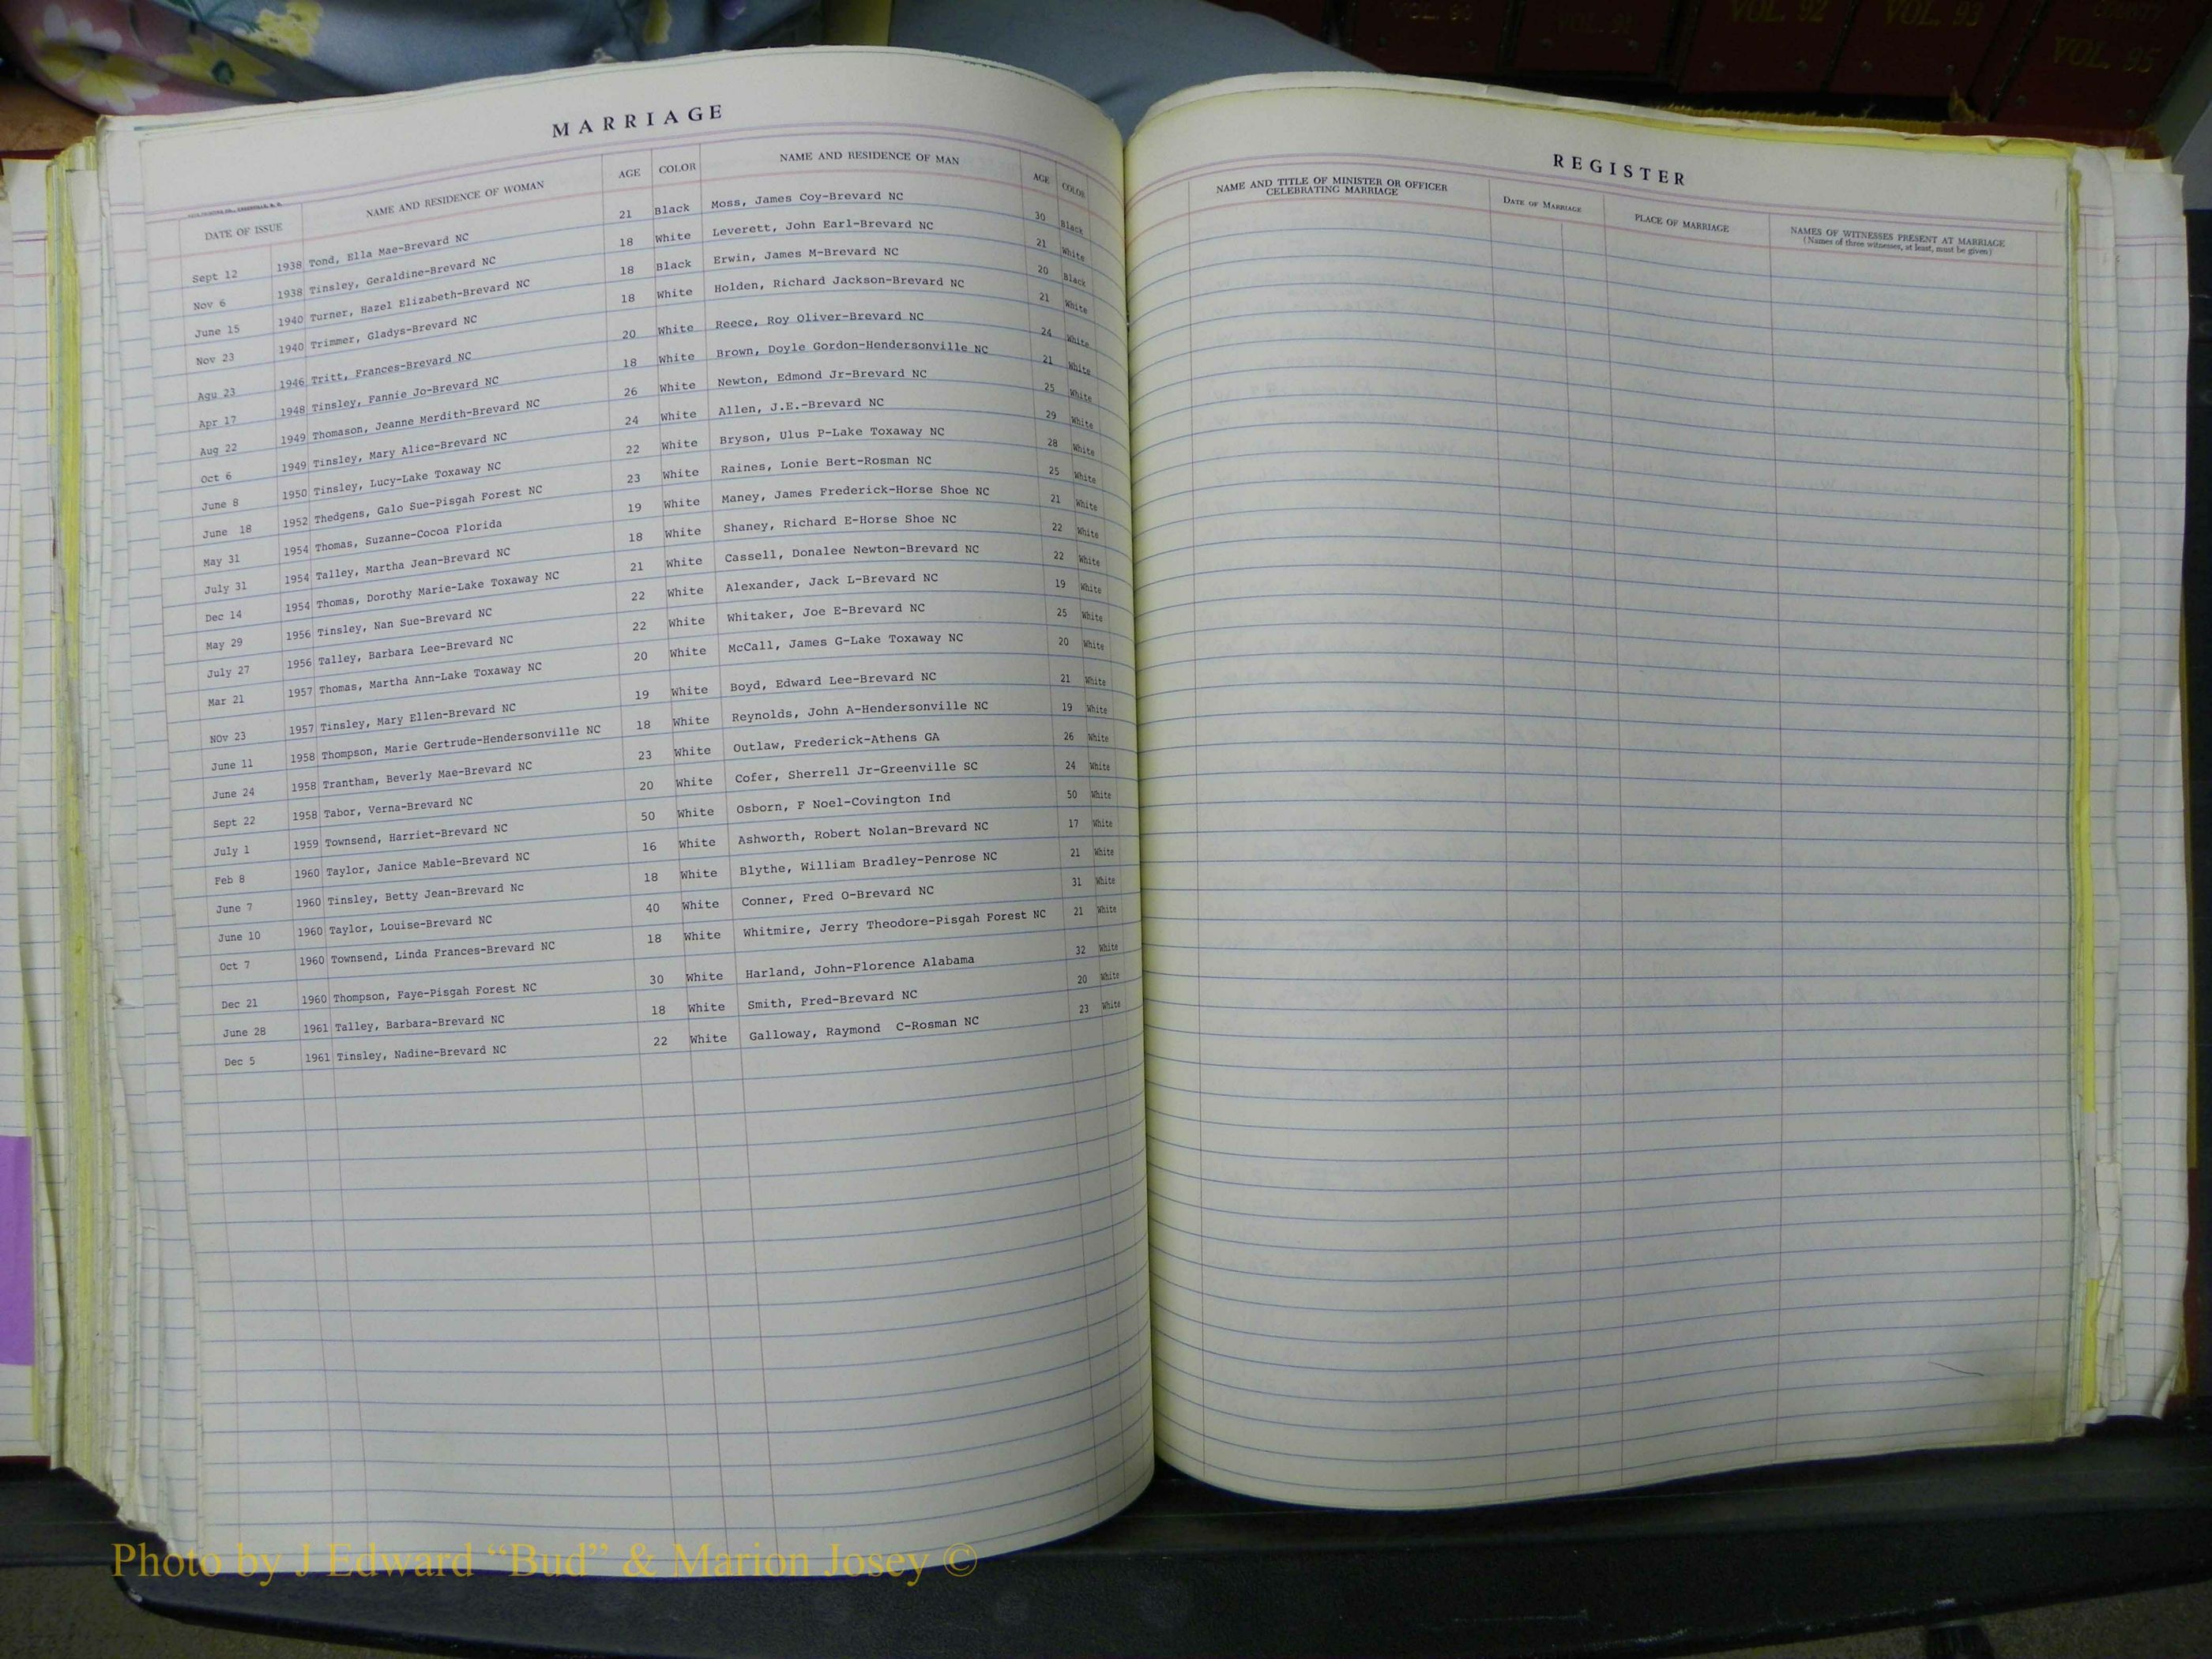 VOL. 90 VOL. 91 VOL. 92 VOL. 93 VOL. 95
MARRIAGE
DATE OF ISSUE NAME AND RESIDENCE OF WOMAN AGE COLOR NAME AND RESIDENCE OF MAN AGE COLOR
Sept 12 1938 Tond, Ella Mae-Brevard NC 21 Black Moss, James Coy-Brevard NC 30 Black
Nov 6 1938 Tinsley, Geraldine-Brevard NC 18 White Leverett, John Earl-Brevard NC 21 White
June 15 1940 Turner, Hazel Elizabeth-Brevard NC 18 Black Erwin, James M-Brevard NC 20 Black
Nov 23 1940 Trimmer, Gladys-Brevard NC 18 White Holden, Richard Jackson-Brevard NC 21 White
Agu 23 1946 Tritt, Frances-Brevard NC 20 White Reece, Roy Oliver-Brevard NC 24 White
Apr 17 1948 Tinsley, Fannie Jo-Brevard NC 18 White Brown, Doyle Gordon-Hendersonville NC 21 White
Aug 22 1949 Thomason, Jeanne Merdith-Brevard NC 26 White Newton, Edmond Jr-Brevard NC 25 White
Oct 6 1949 Tinsley, Mary Alice-Brevard NC 24 White Allen, J.E.-Brevard NC 29 White
June 8 1950 Tinsley, Lucy-Lake Toxaway NC 22 White Bryson, Ulus P-Lake Toxaway NC 28 White
June 18 1952 Thedgens, Galo Sue-Pisgah Forest NC 23 White Raines, Lonie Bert-Rosman NC 25 White
May 31 1954 Thomas, Suzanne-Cocoa Florida 19 White Maney, James Frederick-Horse Shoe NC 21 White
July 31 1954 Talley, Martha Jean-Brevard NC 18 White Shaney, Richard E-Horse Shoe NC 22 White
Dec 14 1954 Thomas, Dorothy Marie-Lake Toxaway NC 21 White Cassell, Donalee Newton-Brevard NC 22 White
May 29 1956 Tinsley, Nan Sue-Brevard NC 22 White Alexander, Jack L-Brevard NC 19 White
July 27 1956 Talley, Barbara Lee-Brevard NC 22 White Whitaker, Joe E-Brevard NC 25 White
Mar 21 1957 Thomas, Martha Ann-Lake Toxaway NC 20 White McCall, James G-Lake Toxaway NC 20 White
NOv 23 1957 Tinsley, Mary Ellen-Brevard NC 19 White Boyd, Edward Lee-Brevard NC 21 White
June 11 1958 Thompson, Marie Gertrude-Hendersonville NC 18 White Reynolds, John A-Hendersonville NC 19 White
June 24 1958 Trantham, Beverly Mae-Brevard NC 23 White Outlaw, Frederick-Athens GA 26 White
Sept 22 1958 Tabor, Verna-Brevard NC 20 White Cofer, Sherrell Jr-Greenville SC 24 White
July 1 1959 Townsend, Harriet-Brevard NC 50 White Osborn, F Noel-Covington Ind 50 White
Feb 8 1960 Taylor, Janice Mable-Brevard NC 16 White Ashworth, Robert Nolan-Brevard NC 17 White
June 7 1960 Tinsley, Betty Jean-Brevard Nc 18 White Blythe, William Bradley-Penrose NC 21 White
June 10 1960 Taylor, Louise-Brevard NC 40 White Conner, Fred O-Brevard NC 31 White
Oct 7 1960 Townsend, Linda Frances-Brevard NC 18 White Whitmire, Jerry Theodore-Pisgah Forest NC 21 White
Dec 21 1960 Thompson, Faye-Pisgah Forest NC 30 White Harland, John-Florence Alabama 32 White
June 28 1961 Talley, Barbara-Brevard NC 18 White Smith, Fred-Brevard NC 20 White
Dec 5 1961 Tinsley, Nadine-Brevard NC 22 White Galloway, Raymond C-Rosman NC 23 White
REGISTER
NAME AND TITLE OF MINISTER OR OFFICER CELEBRATING MARRIAGE DATE OF MARRIAGE PLACE OF MARRIAGE NAMES OF WITNESSES PRESENT AT MARRIAGE
(Names of three witnesses, at least, must be given)
Photo by J Edward “Bud” & Marion Josey ©